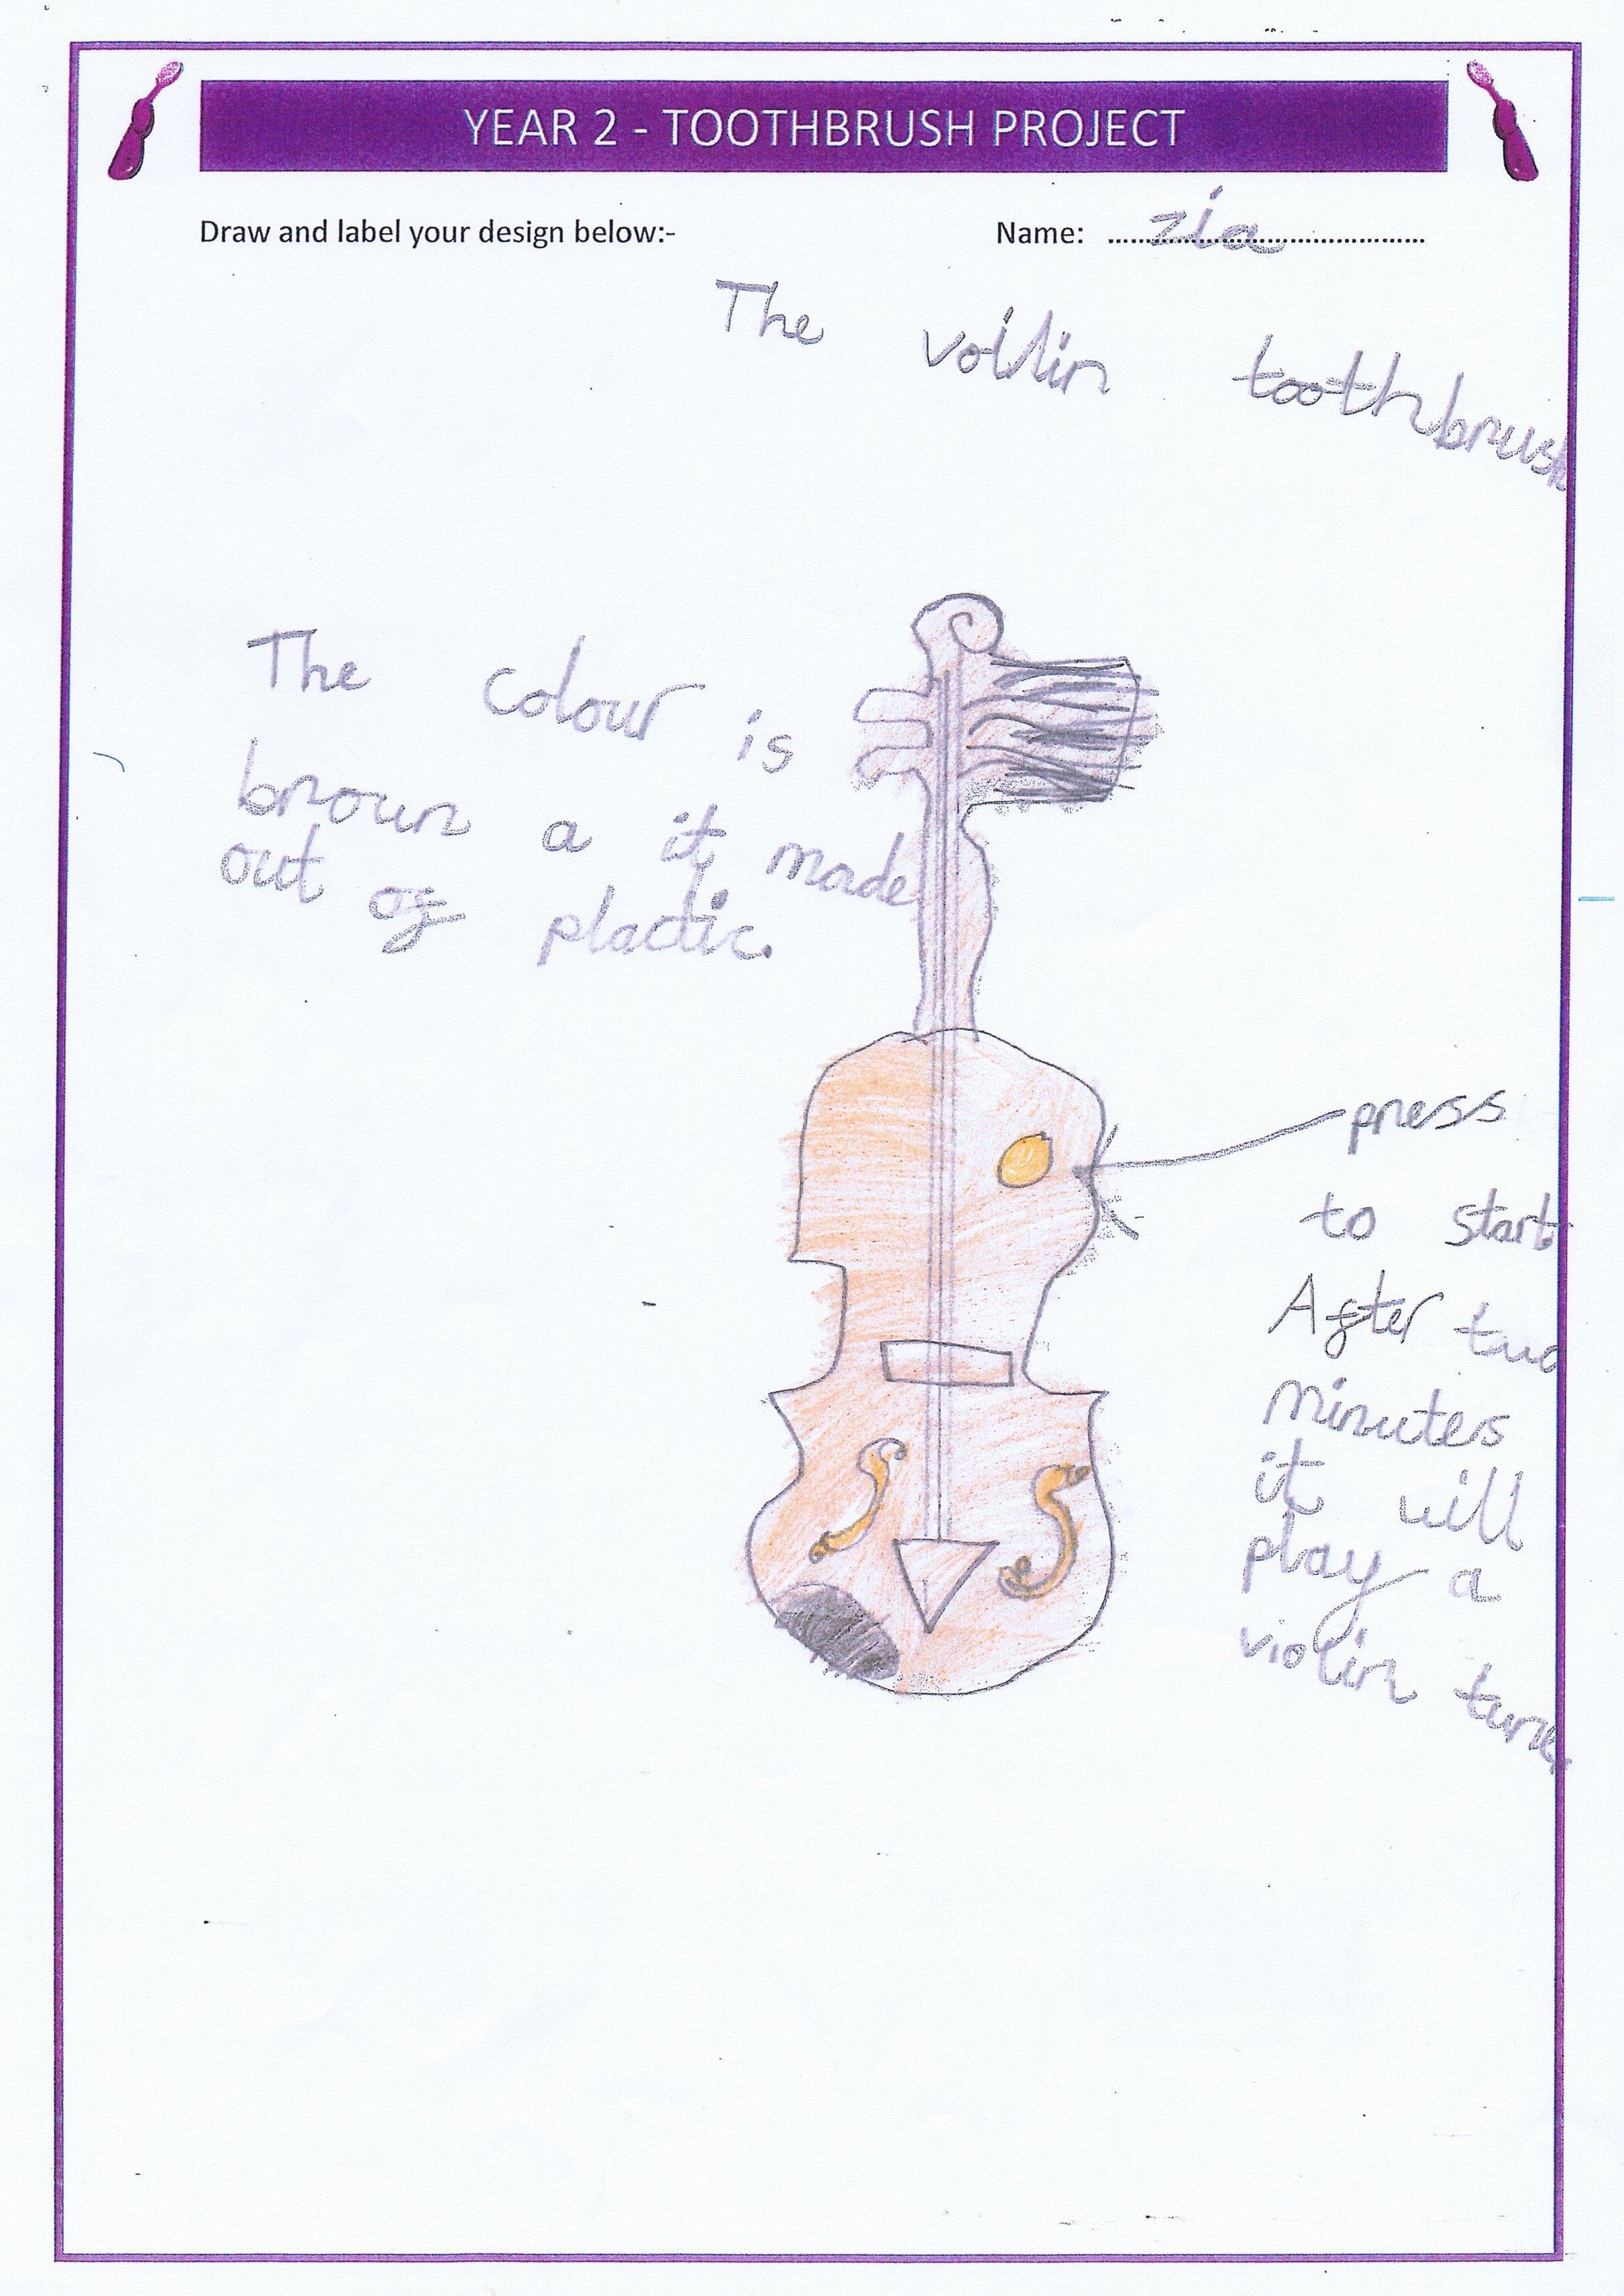 YEAR 2 - TOOTHBRUSH PROJECT
Draw and label your design below:-
Name: zia
The voilin toothbrush
The colour is
brown a it made
out of plactic.
press
to start
After two
minuters
it will
play a
violin tune